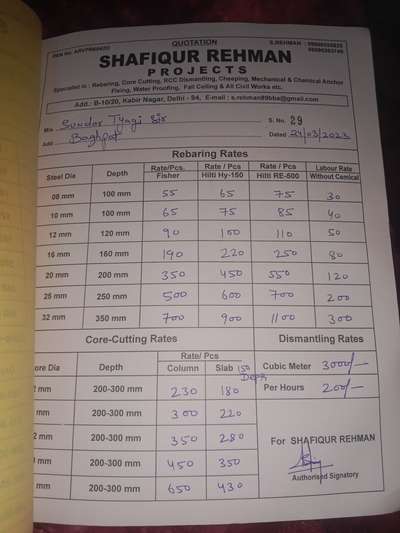 QUOTATION
S.REHMAN
SHAFIQUR REHMAN
PROJECTS
Specialist in : Rebaring, Core Cutting, RCC Dismantling, Cheeping, Mechanical & Chemical Anchor
Fixing, Water Proofing, Fall Ceiling & All Civil Works etc.
Add.: B-10/20, Kabir Nagar, Delhi - 94, E-mail : s.rehman89bba@gmail.com
M/s Sunder Tyagi Sir S. No. 29
Add Baghpat Dated 24/03/2023
Rebaring Rates
Steel Dia Depth Rate/Pcs. Fisher Rate / Pcs Hilti Hy-150 Rate / Pcs Hilti RE-500 Labour Rate Without Cemical
08 mm 100 mm 55 65 75 30
10 mm 100 mm 65 75 85 40
12 mm 120 mm 90 100 110 50
16 mm 160 mm 190 220 250 80
20 mm 200 mm 350 450 550 120
25 mm 250 mm 500 600 700 200
32 mm 350 mm 700 900 1100 300
Core-Cutting Rates Dismantling Rates
ore Dia Depth Rate/ Pcs
Column Slab 150
Cubic Meter 3000/-
mm 200-300 mm 230 180 Per Hours 200/-
mm 200-300 mm 300 220
2 mm 200-300 mm 350 280
mm 200-300 mm 450 350
mm 200-300 mm 650 430
For SHAFIQUR REHMAN
Authorised Signatory